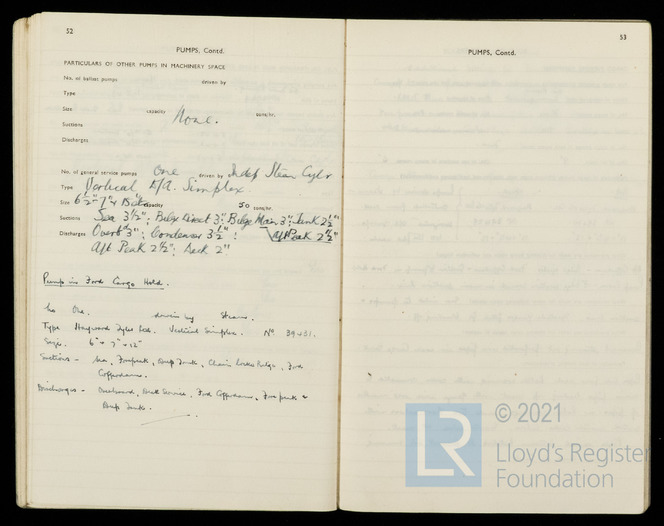 52
PUMPS, Contd.
PARTICULARS OF OTHER PUMPS IN MACHINERY SPACE
No. of ballast pumps driven by
Type
Size capacity None. tons/hr.
Suctions
Discharges
No. of general service pumps One driven by Indep Steam Cylr
Type Vertical D/A. Simplex.
Size 6½" × 7" × capacity 50 tons/hr.
Suctions Sea 3½"; Bilge Direct 3"; Bilge Main 3"; Tank 2½"
Discharges Overbd 3"; Condenser 3½"; Aft Peak 2½"
Aft Peak 2½"; Deck 2"
Pump in Ford Cargo Hold.
No One. driven by Steam.
Type Hayward Tyler Ltd. Vertical Simplex. No 39431.
Size. 6" × 7" × 12"
Suctions - Sea, Forepeak, Deep Tanks, Chain Locker Bilge, Ford
Cofferdams.
Discharges - Overboard, Deck Service, Ford Cofferdams, Fore peak &
Deep Tanks.
53
PUMPS, Contd.
LR
© 2021
Lloyd's Register
Foundation